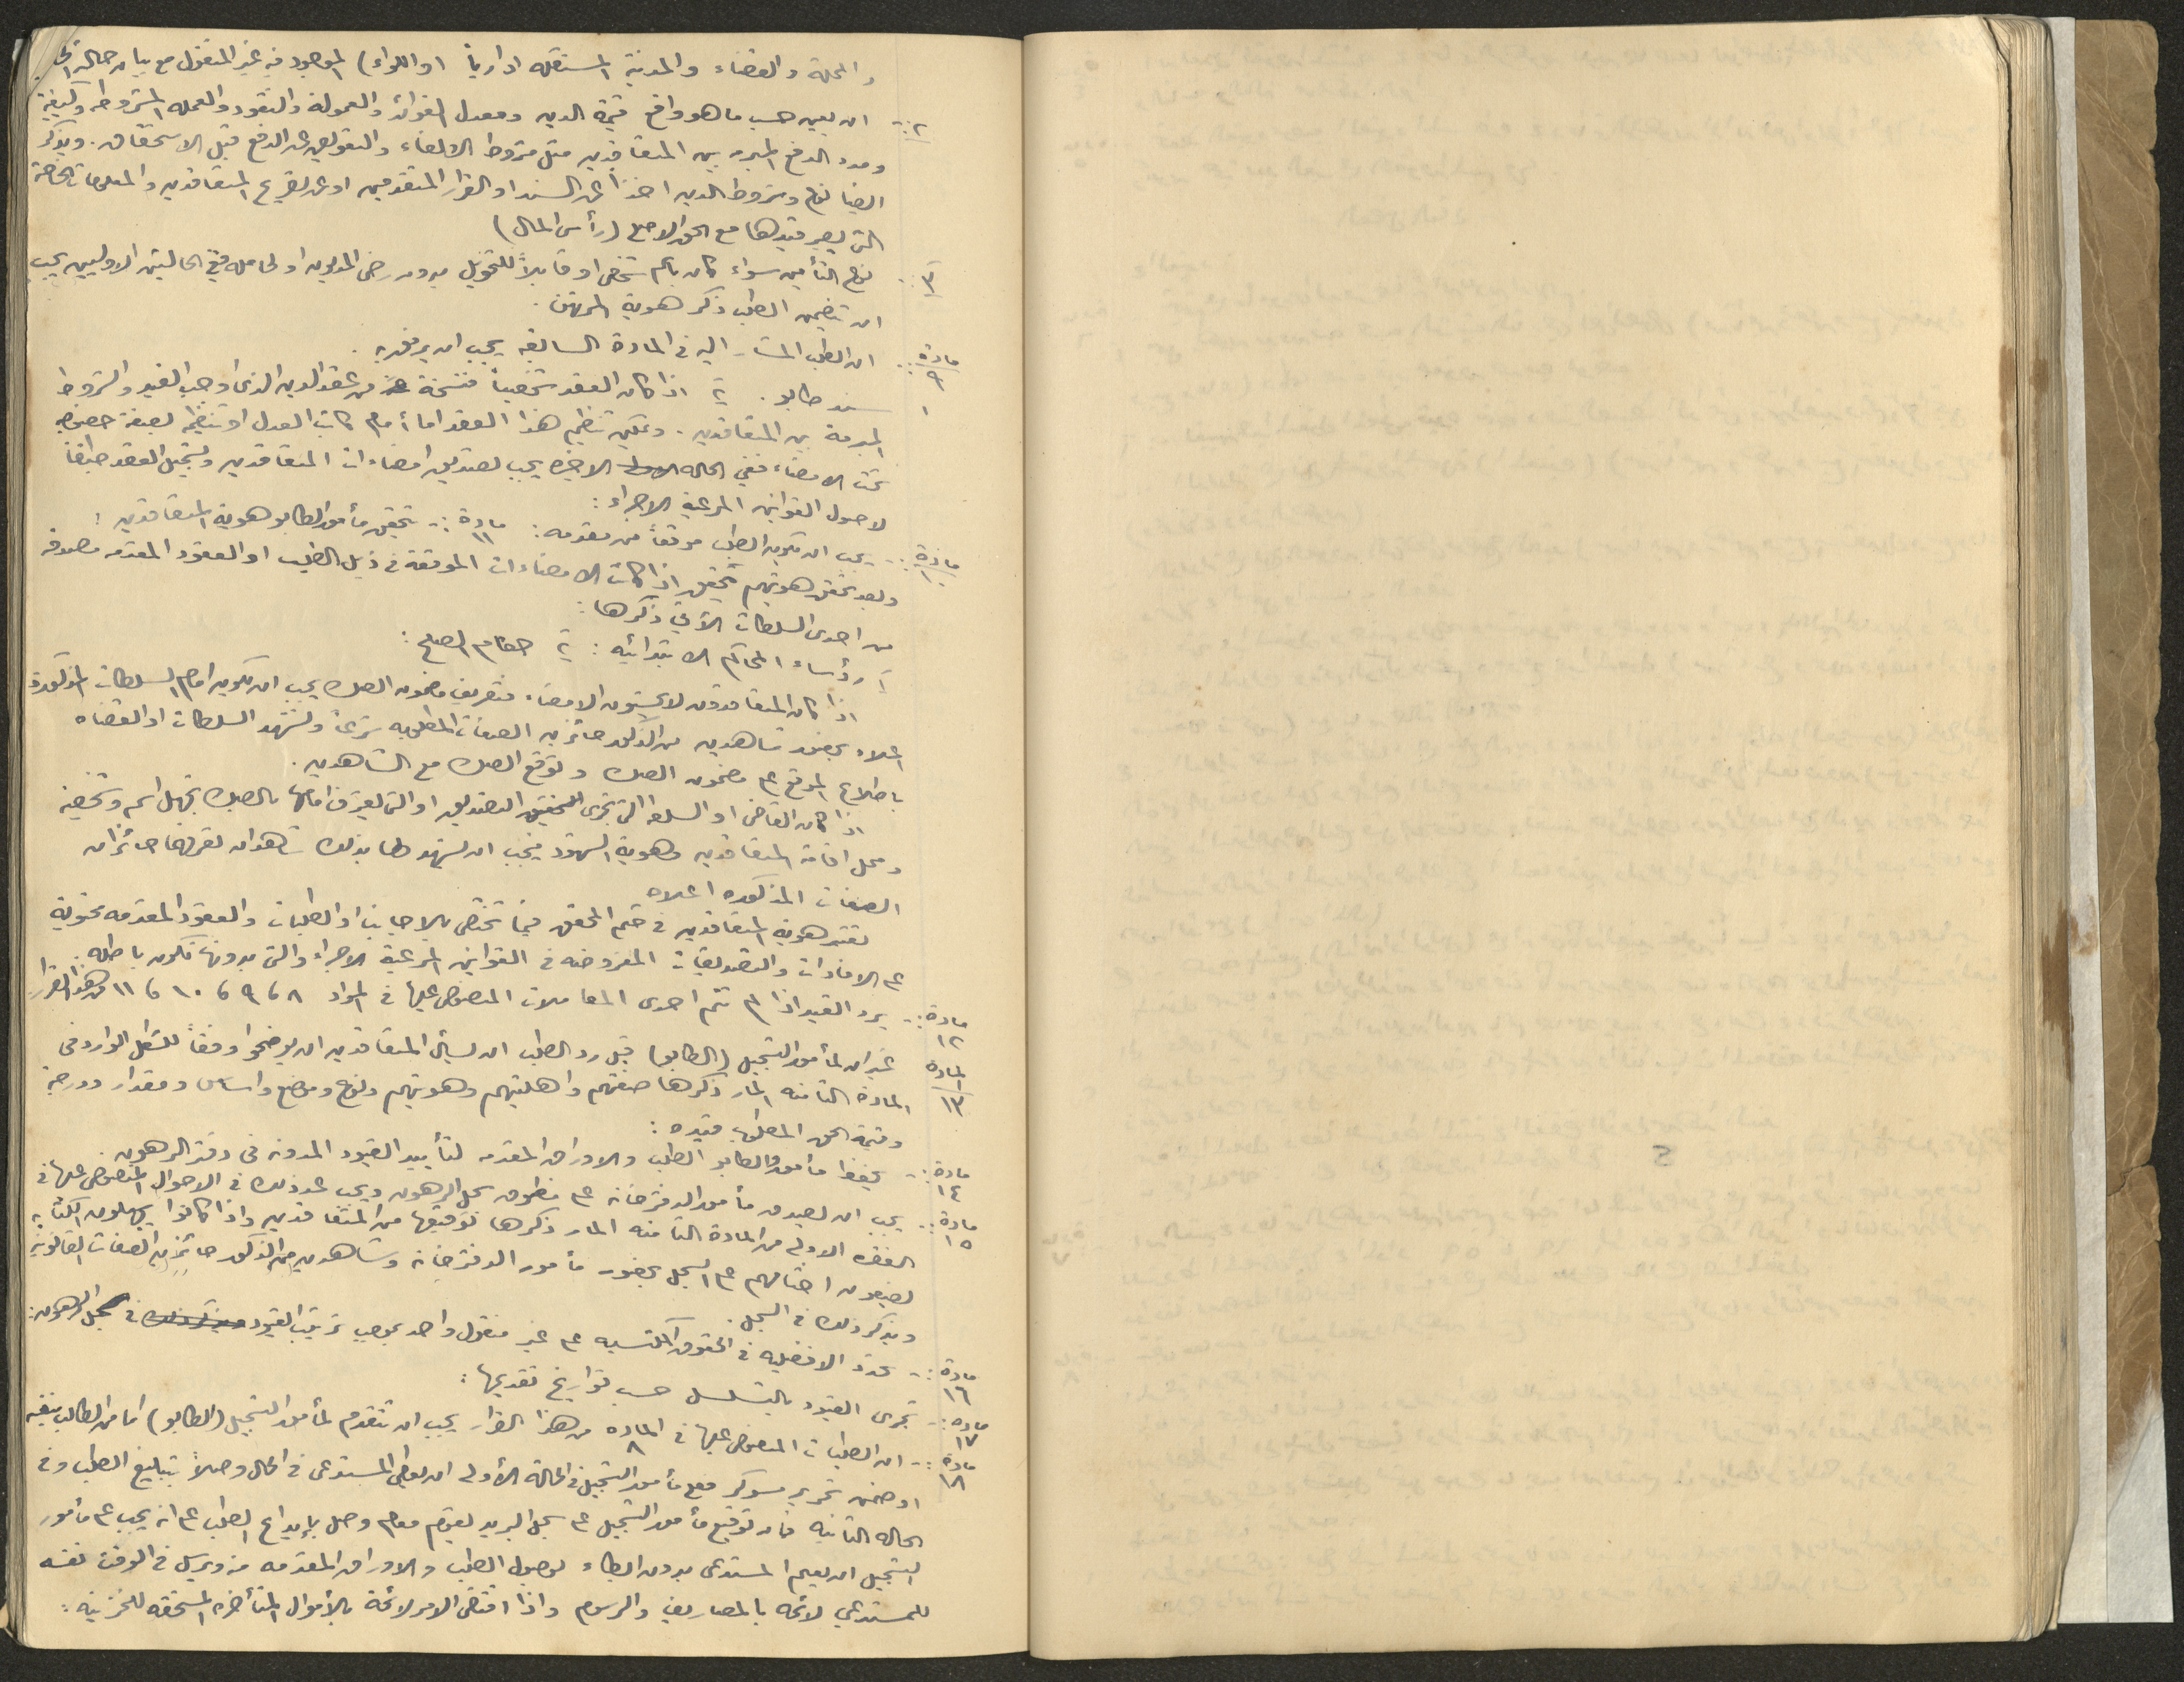 والمحلة والقضاء والمدينة المستقله ادارياً (او اللواء) الموجود فيه غير المنقول مع بيان حالة
٢:- ان يعين حسب ما هو واقع قيمة الدين ومعدل الفوائد والعمولة والنقود والعمله المشروطه وكيفية
ومدد الدفع المبرمه بين المتعاقدين مثل شروط الالغاء والتعويض عن الدفع قبل الاستحقاق. ويذكر
ايضا نوع وشروط الدين اخذاً عن السند او القرار المتقدمين او عن تصريح المتعاقدين والمعلومات الخاصة
التي يصير قيدها مع الحق الاصلي (رأس المال)
٣:- نوع التأمين سواء كان باسم شخص او قابلاً للتحويل بدون رضى المديون او لحامله ففي الحالتين الاوليين يجب
ان يتضمن الطلب ذكر هوية المرتهن.
مادة ٩:- ان الطلب المشار اليه في المادة السابقه يجب ان يرفق به.
١ سند طابو. ٢ اذا كان العقد شخصياً فنسخة عن عقد الدين الذي اوجب القيد والشروط
المبرمة بين المتعاقدين. ويمكن تنظيم هذا العقد اما أمام كاتب العدل او تنظيمه بصفة خصوصيه
تحت الامضاء ففي الحاله الاخيره يجب تصديق امضاءات المتعاقدين وتسجيل العقد طبقاً
لاصول القوانين المرعية الاجراء:
مادة ١٠:- يجب ان يكون الطلب موقعاً من مقدمه: مادة ١١:- يحقق مأمور الطابو هوية المتعاقدين:
وبعد تحقق هويتهم يحقق اذا كانت الامضاءات الموقعة في ذيل الطلب او العقود المقدمه مصدقه
من احدى السلطات الآتي ذكرها:
١ رؤساء المحاكم الابتدائيه: ٢ حكام الصلح:
اذا كان المتعاقدون لا يحسنون الامضاء فتعريف مضمون الصك يجب ان يكون امام السلطات المذكورة
اعلاه بحضور شاهدين من الذكور حائزين الصفات المطلوبه شرعاً وتشهد السلطات او القضاه
باطلاع الموقع على مضمون الصك وتوقع الصك مع الشاهدين.
اذا كان القاضي او السلطه التي تجري التصديق او التي يعترف امامها بالصك تجهل اسم وشخصية
ومحل اقامة المتعاقدين وهوية الشهود فيجب ان يشهد لها بذلك شاهدان تعرفهما حائزان
الصفات المذكوره اعلاه
تعتبر هوية المتعاقدين في حكم المحقق فيما تختص بالاجانب اذا الطلبات والعقود المقدمه محتوية
على الافادات والتصديقات المفروضه في القوانين المرعية الاجراء والتي بدونها تكون باطله.
مادة ١٢:- يرد القيد اذا لم تتم احدى المعاملات المنصوص عليها في المواد ٨ و ٩ و ١٠ و ١١ من هذا القرار
المادة ١٣ غير ان لمأمور التسجيل (الطابو) قبل رد الطلب ان يسأل المتعاقدين ان يوضحوا وفقاً للشكل الوارد في
المادة الثامنه المار ذكرها صفتهم واهليتهم وهويتهم ونوع وموضع واساس ومقدار ودرجة
وقيمة الحق المطلوب قيده:
مادة ١٤:- يحفظ مأمور الطابو الطلب والاوراق المقدمه لتأييد القيود المدونه في دفتر الرهون
مادة ١٥:- يجب ان يصدق مأمور الدفترخانه على منطوق سجل الرهون ويجب عدا ذلك في الاحوال المنصوص عليها في
الفقره الاولى من المادة الثامنه المار ذكرها توقيعها من المتعاقدين واذا كانوا يجهلون الكتابه
يضعون اختامهم على السجل بحضور مأمور الدفترخانه وشاهدين من الذكور حائزين الصفات القانونية
ويذكر ذلك في السجل.
مادة ١٦:- تحدد الافضليه في الحقوق المكتسبه على غير منقول واحد بموجب ترتيب القيود في سجل الرهون:
مادة ١٧:- تجري القيود بالتسلسل حسب تواريخ تقديمها:
مادة ١٨:- ان الطلبات المنصوص عليها في الماده ٨ من هذا القرار يجب ان تتقدم لمأمور التسجيل (الطابو) اما من الطالب بنفسه
او ضمن تحرير مسوكر فعلى مأمور التسجيل في الحالة الأولى ان يعطي المستدعي في الحال وصلاً بتبليغ الطلب وفي
الحاله الثانيه فان توقيع مأمور التسجيل على سجل البريد يقوم مقام وصل بإيداع الطلب على انه يجب على مأمور
التسجيل ان يعلم المستدعي بدون ابطاء بوصول الطلب والاوراق المقدمه منه ويرسل في الوقت نفسه
للمستدعي لائحه بالمصاريف والرسوم واذا اقتضى الامر لائحة بالأموال المتأخره المستحقه للخزينه: